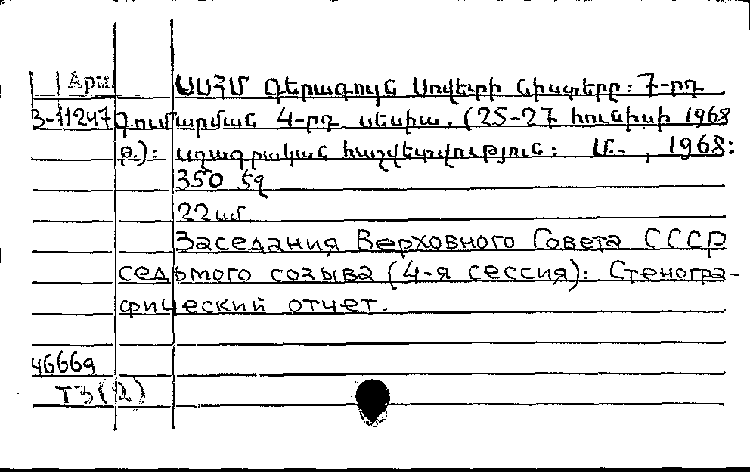 Арм ՍՍՀՄ Գերագույն Սովետի նիստերը: 7-րդ
3-11247 Գումարման 4-րդ սեսիա. (25-27 հունիսի 1968
թ.): սղագրական հաշվետվություն: Մ., 1968:
350 էջ
22սմ
Заседания Верховного Совета СССР
седьмого созыва (4-я сессия). Стеногра-
фический отчет.
46669
Т3(2)